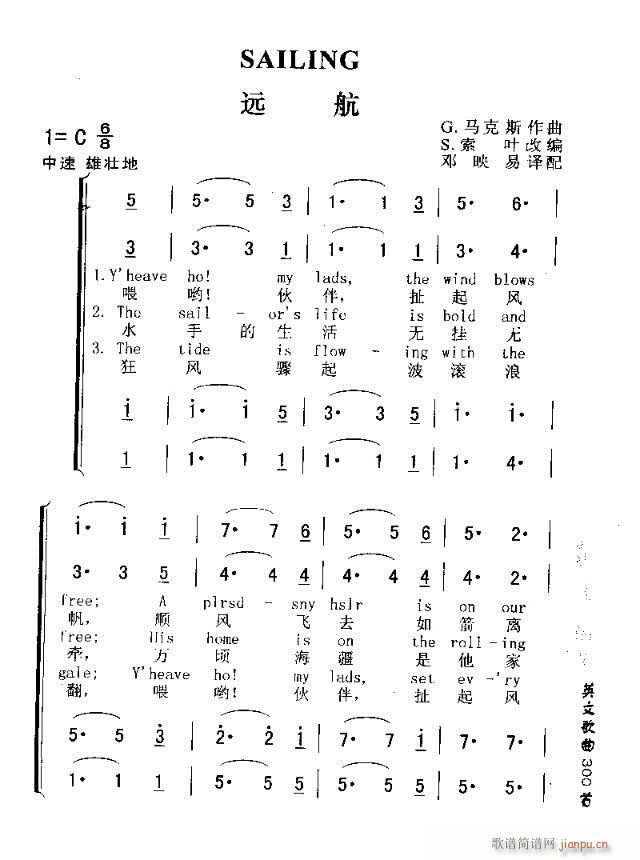 SAILING
远 航
1= C 6/8
G. 马克斯作曲
中速 雄壮地
S. 索 叶改编
邓 映 易译配
5 | 5· 5 3 | 1· 1 3 | 5· 6· |
3 | 3· 3 1 | 1· 1 1 | 3· 4· |
1. Y'heave ho! my lads, the wind blows
喂 哟! 伙 伴, 扯 起 风
2. The sail - or's life is bold and
水 手 的 生 活 无 挂 无
3. The tide is flow - ing with the
狂 风 骤 起 波 滚 浪
i | i· i 5 | 3· 3 5 | i· i· |
1 | 1· 1 1 | 1· 1 1 | 1· 4· |
i· i i | 7· 7 6 | 5· 5 6 | 5· 2· |
3· 3 5 | 4· 4 4 | 4· 4 4 | 4· 2· |
free; A plrsd - sny hslr is on our
帆, 顺 风 飞 去 如 箭 离
free; His home is on the roll - ing
牵, 万 顷 海 疆 是 他 家
gale; Y'heave ho! my lads, set ev - 'ry
翻, 喂 哟! 伙 伴, 扯 起 风
5· 5 3 | 2· 2 i | 7· 7 i | 7· 7· |
1· 1 1 | 5· 5 5 | 5· 5 5 | 5· 5· |
英文歌曲300首
歌谱简谱网 jianpu.cn